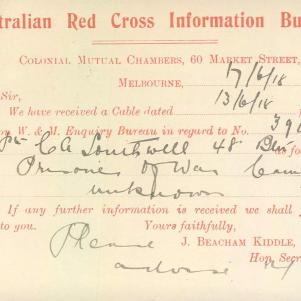 tralian Red Cross Information Bu
Colonial Mutual Chambers, 60 Market Street,
Melbourne, 17/6/18
Sir,
We have received a Cable dated 13/6/18
on W. & M. Enquiry Bureau in regard to No. 390
Pte C A Southwell 48 Btn as fo
Prisoner of War Cam
unknown
If any further information is received we shall
to you. Yours faithfully,
Please J. Beacham Kiddle,
advise Hon. Secr